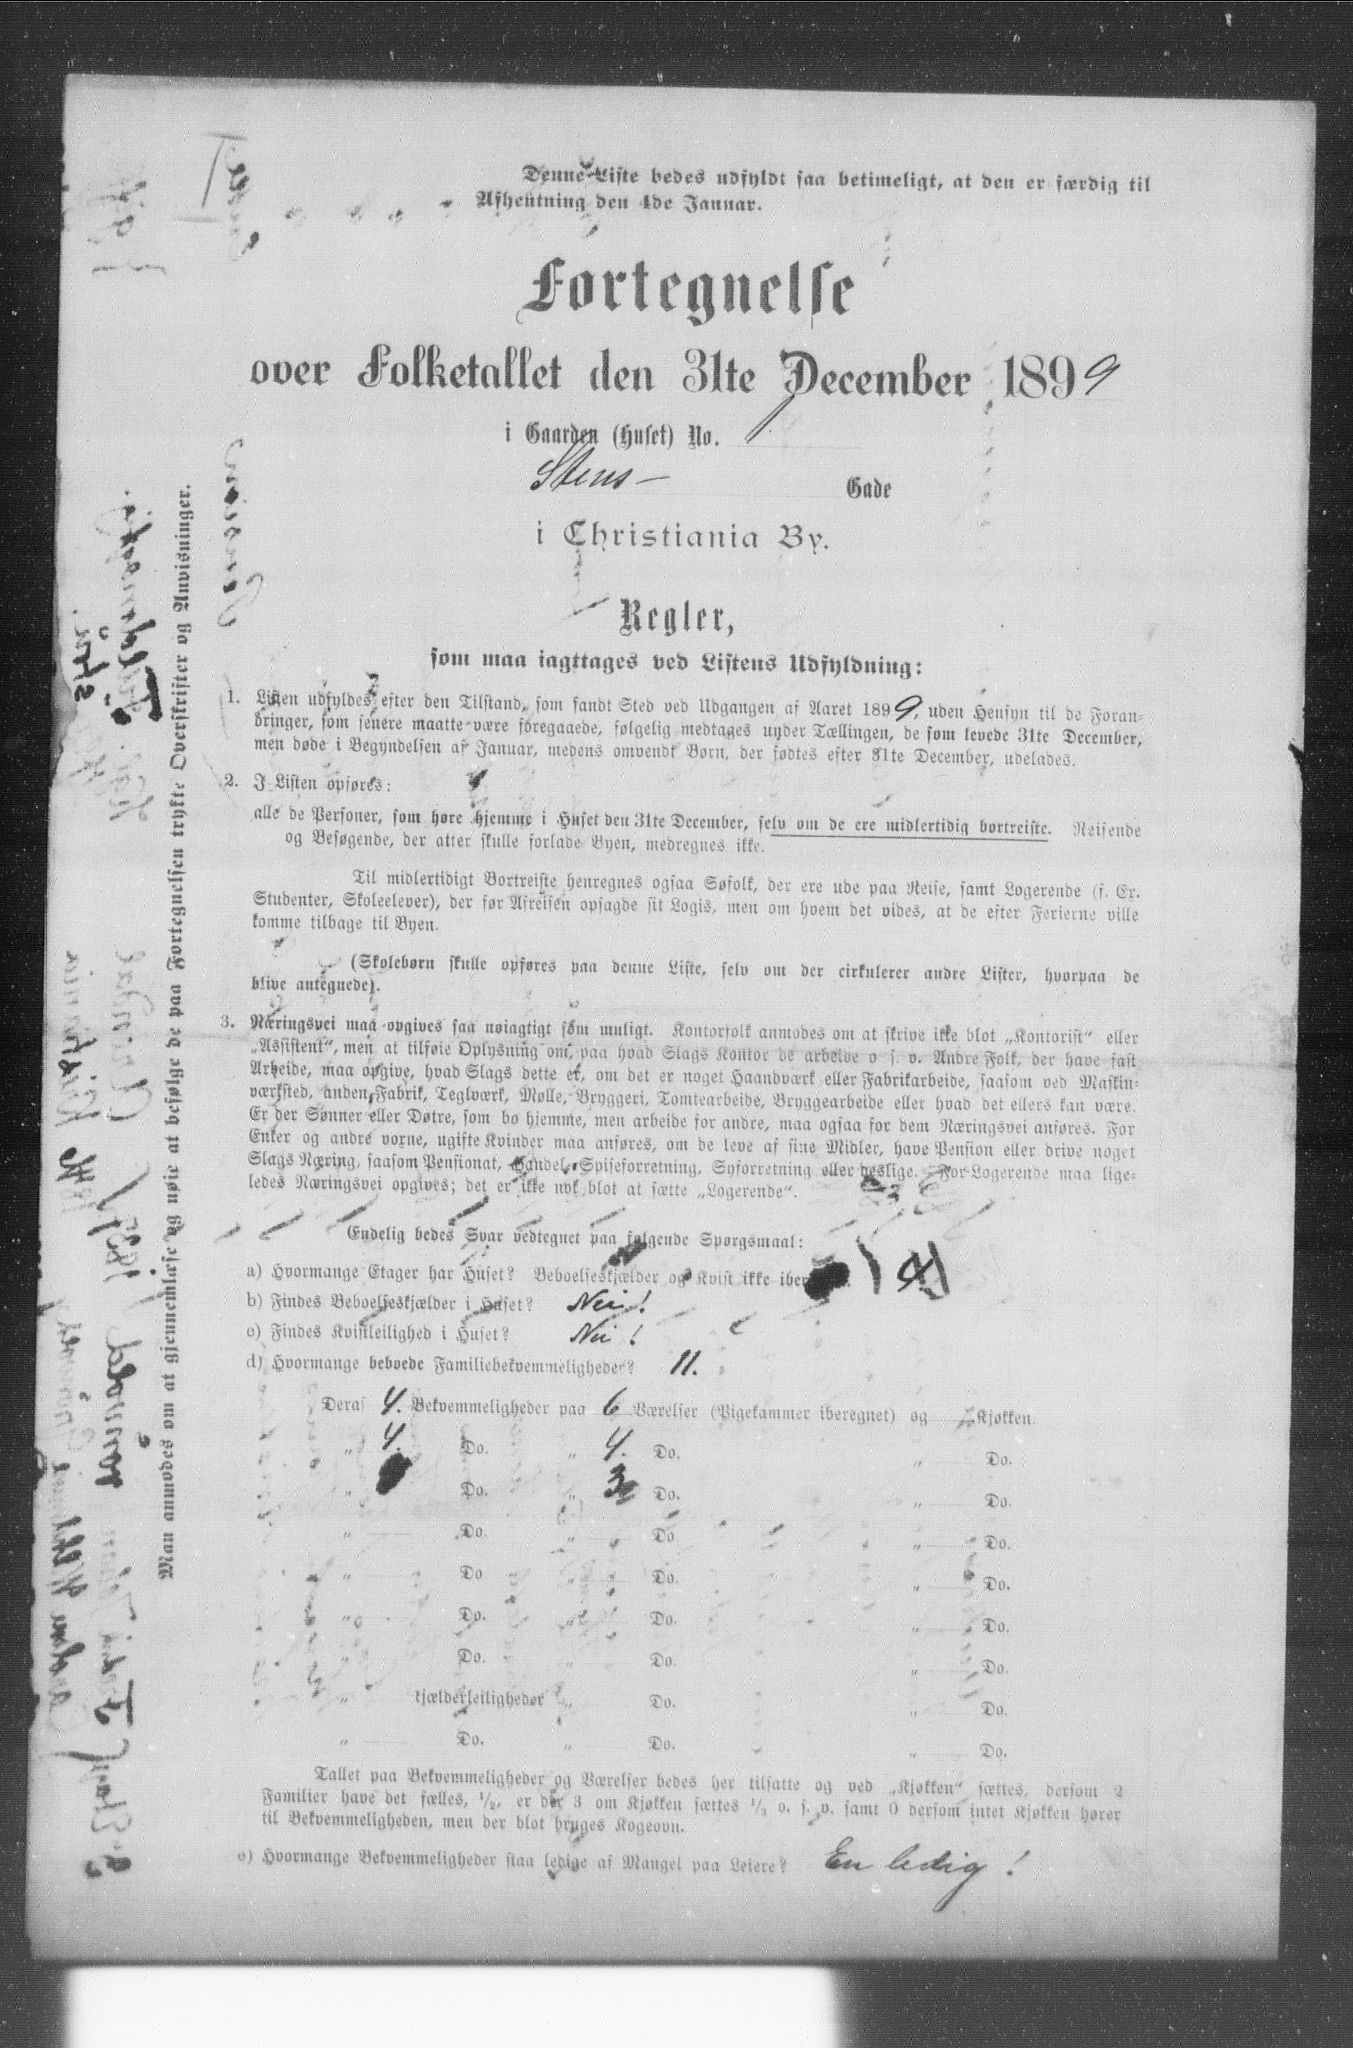 Denne Liste bedes udfyldt saa betimeligt, at den er færdig til
Afhentning den 4de Januar.
Fortegnelse
over Folketallet den 31te December 1899
i Gaarden (Huset) No. 1.
Stens- Gade
i Christiania By.
Regler,
som maa iagttages ved Listens Udfyldning:
1. Listen udfyldes efter den Tilstand, som fandt Sted ved Udgangen af Aaret 1899, uden Hensyn til de Foran-
dringer, som senere maatte være foregaaede, følgelig medtages under Tællingen, de som levede 31te December,
men døde i Begyndelsen af Januar, medens omvendt Børn, der fødtes efter 31te December, udelades.
2. I Listen opføres:
alle de Personer, som høre hjemme i Huset den 31te December, selv om de ere midlertidig bortreiste. Reisende
og Besøgende, der atter skulle forlade Byen, medregnes ikke.
Til midlertidigt Bortreiste henregnes ogsaa Søfolk, der ere ude paa Reise, samt Logerende (f. Ex.
Studenter, Skoleelever), der før Afreisen opsagde sit Logis, men om hvem det vides, at de efter Ferierne ville
komme tilbage til Byen.
(Skolebørn skulle opføres paa denne Liste, selv om der cirkulerer andre Lister, hvorpaa de
blive antegnede).
3. Næringsvei maa opgives saa nøiagtigt som muligt. Kontorfolk anmodes om at skrive ikke blot „Kontorist“ eller
„Assistent“, men at tilføie Oplysning om, paa hvad Slags Kontor de arbeide o. s. v. Andre Folk, der have fast
Arbeide, maa opgive, hvad Slags dette er, om det er noget Haandværk eller Fabrikarbeide, saasom ved Maskin-
værksted, anden Fabrik, Teglværk, Mølle, Bryggeri, Tomtearbeide, Bryggearbeide eller hvad det ellers kan være.
Er der Sønner eller Døtre, som bo hjemme, men arbeide for andre, maa ogsaa for dem Næringsvei anføres. For
Enker og andre voxne, ugifte Kvinder maa anføres, om de leve af sine Midler, have Pension eller drive noget
Slags Næring, saasom Pensionat, Handel, Spiseforretning, Syforretning eller deslige. For Logerende maa lige-
ledes Næringsvei opgives; det er ikke nok blot at sætte „Logerende“.
Endelig bedes Svar vedtegnet paa følgende Spørgsmaal:
a) Hvormange Etager har Huset? Beboelseskjælder og Kvist ikke iber 4
b) Findes Beboelseskjælder i Huset? Nei!
c) Findes Kvistleilighed i Huset? Nei!
d) Hvormange beboede Familiebekvemmeligheder? 11.
Deraf 4. Bekvemmeligheder paa 6 Værelser (Pigekammer iberegnet) og Kjøkken.
„ 4. Do. „ 4. Do. „ Do.
„ Do. „ 3 Do. „ Do.
„ Do. „ Do. „ Do.
„ Do. „ Do. „ Do.
„ Do. „ Do. „ Do.
„ Do. „ Do. „ Do.
„ kjælderleiligheder „ Do. „ Do.
„ Do. „ Do. „ Do.
Tallet paa Bekvemmeligheder og Værelser bedes her tilsatte og ved „Kjøkken“ sættes, dersom 2
Familier have det fælles, 1/2, er der 3 om Kjøkken sættes 1/3 o. s. v. samt 0 dersom intet Kjøkken hører
til Bekvemmeligheden, men der blot bruges Kogeovn.
e) Hvormange Bekvemmeligheder staa ledige af Mangel paa Leiere? En ledig!
Man anmodes om at gjennemlæse og nøie at befølge de paa Fortegnelsen trykte Overskrifter og Anvisninger.